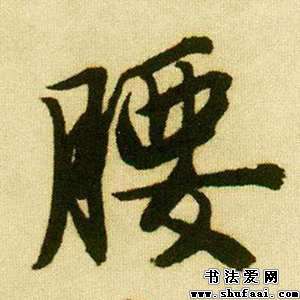 腰
书法爱网
www.shufaai.com